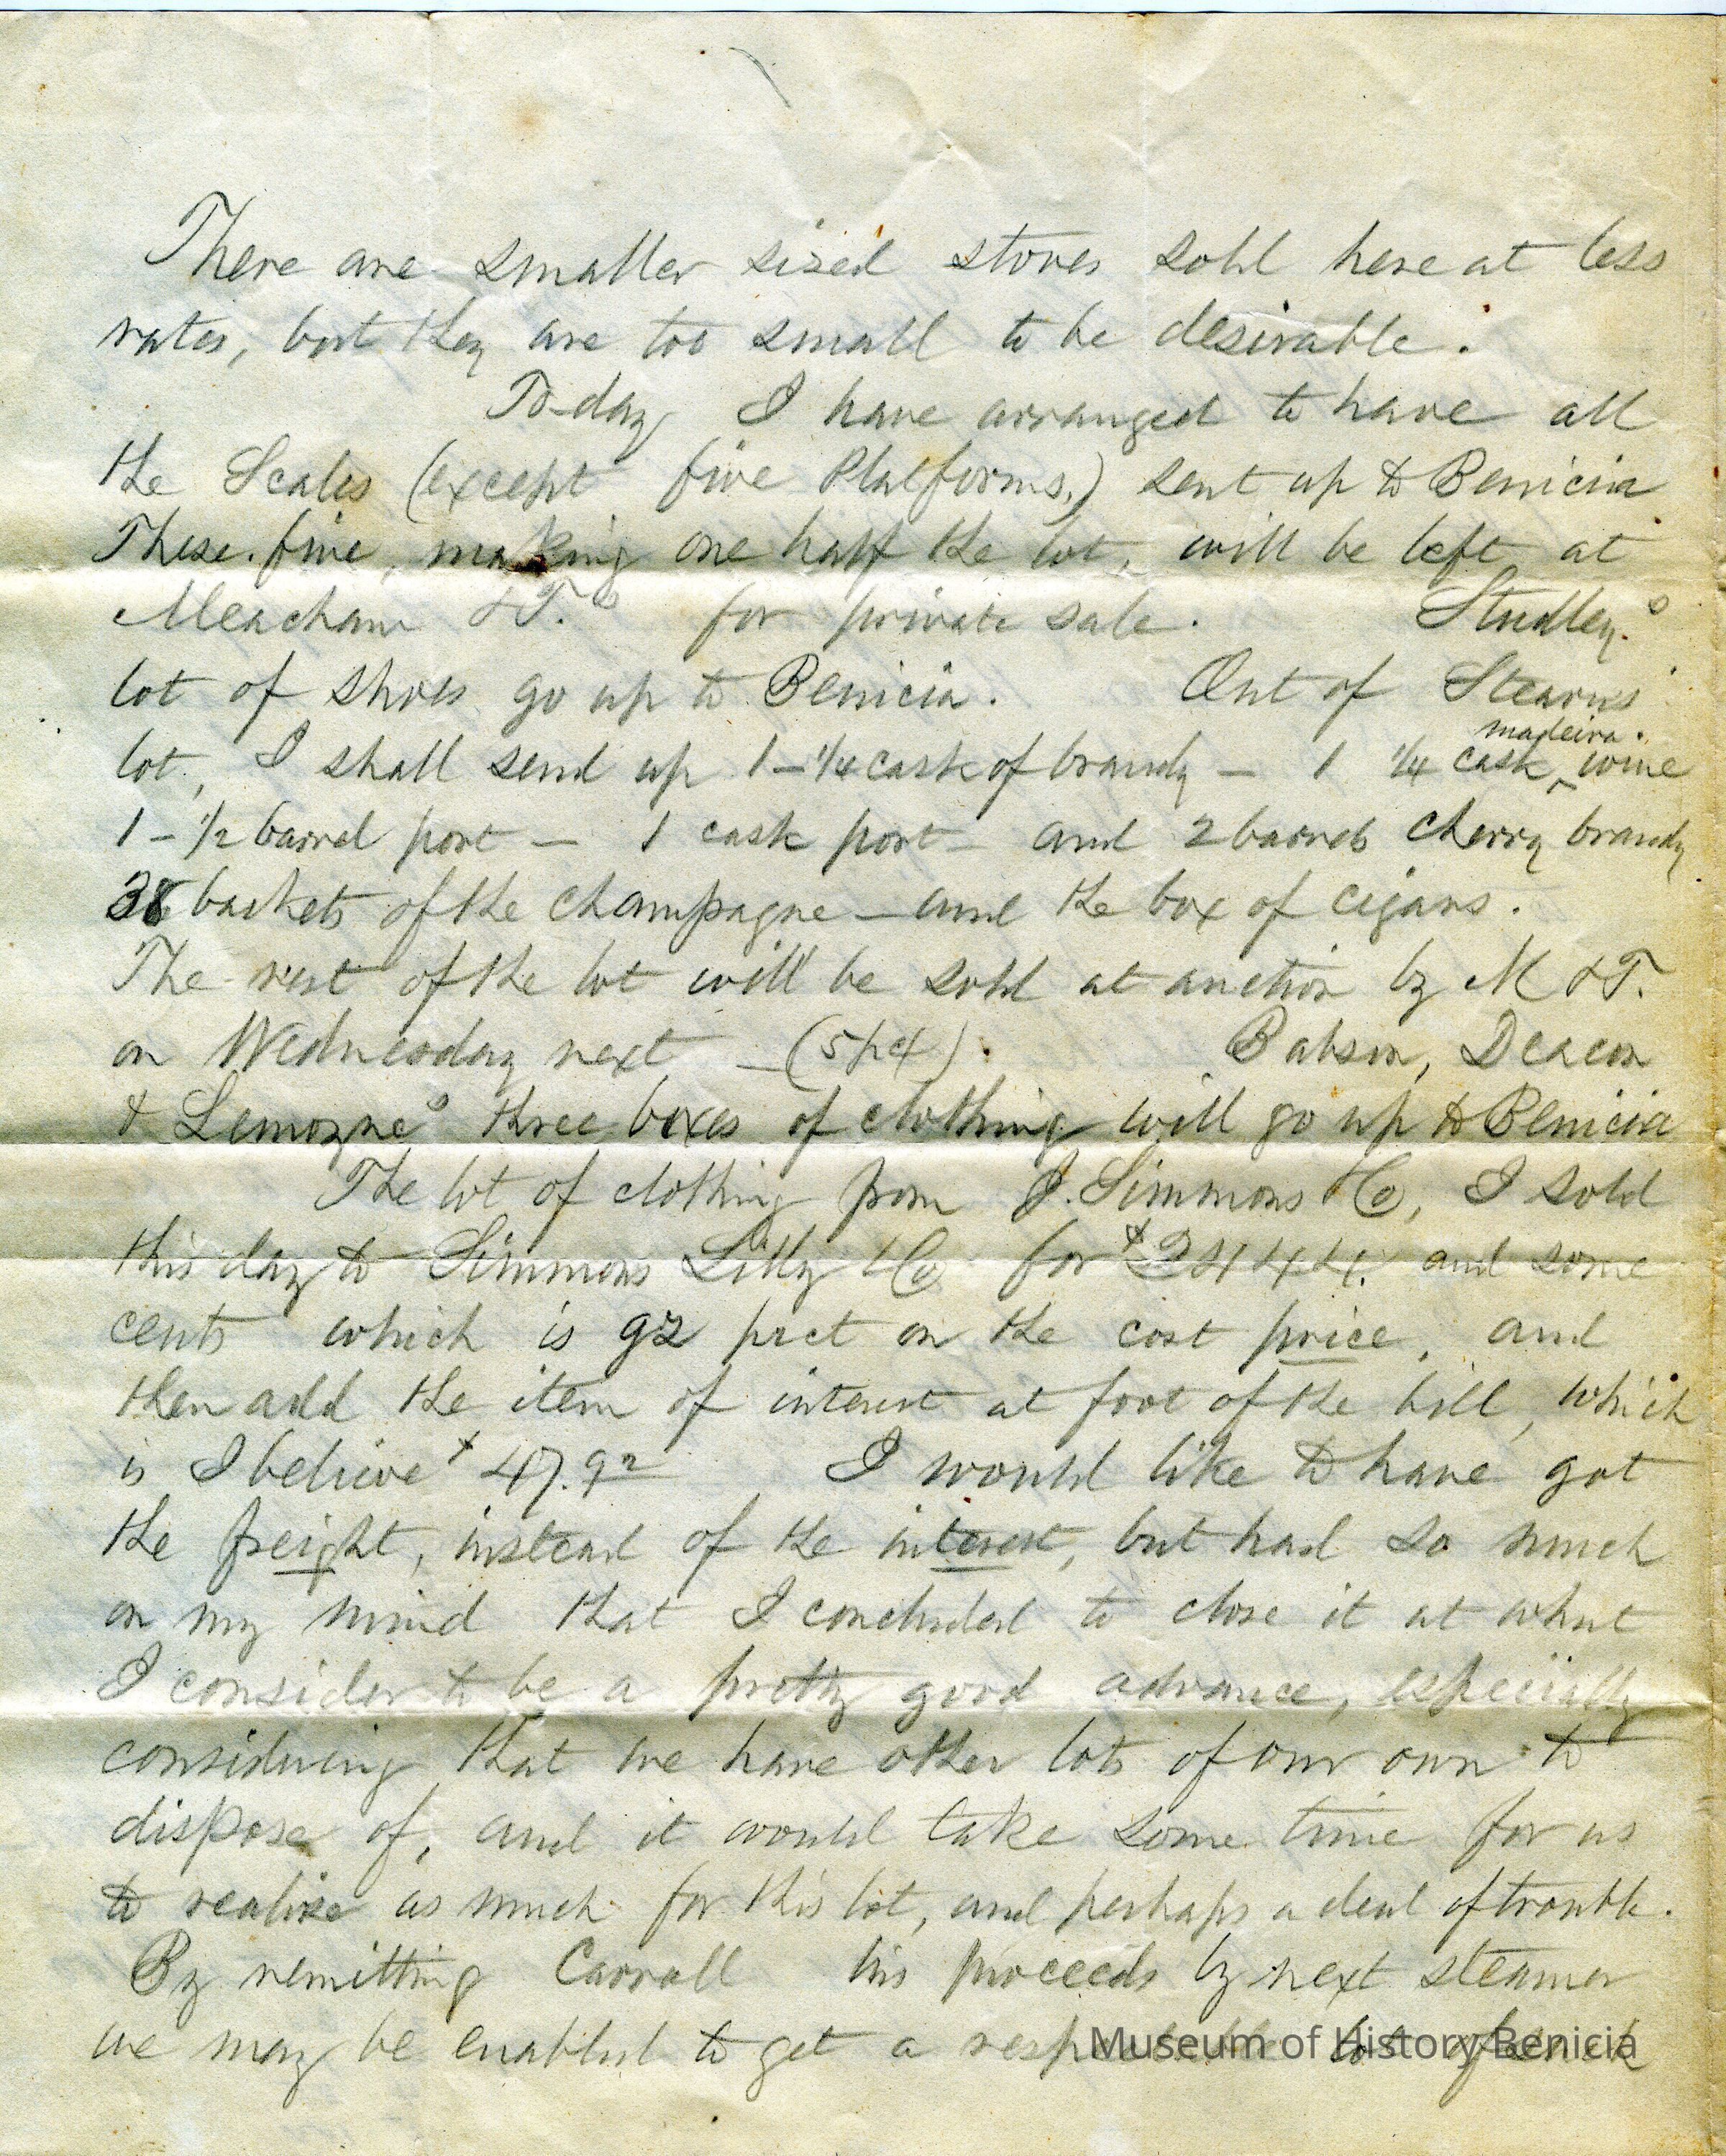 There are smaller sized stoves sold here at less
rates, but they are too small to be desirable.
To-day I have arranged to have all
the Scales (except five Platforms,) sent up to Benicia
These five, making one half the lot, will be left at
Meacham & T.s for private sale. Studley's
lot of shoes go up to Benicia. Out of Stearns'
lot, I shall send up 1-1/4 cask of brandy – 1 1/4 cask ^ madeira wine
1-1/2 barrel port – 1 cask port – and 2 barrels cherry brandy
38 baskets of the champagne – and the box of cigars.
The rest of the lot will be sold at auction by M & T.
on Wednesday next –
Babson, Deacon
& Lemoyne's three boxes of clothing will go up to Benicia
The lot of clothing from J. Simmons & Co, I sold
this day to Simmons Lilly & Co for $2444. and some
cents which is 92 prct on the cost price, and
then add the item of interest at foot of the bill, which
is I believe $47.92 I would like to have got
the freight, instead of the interest, but had so much
on my mind that I concluded to close it at what
I consider to be a pretty good advance, especially
considering that we have other lots of our own to
dispose of, and it would take some time for us
to realize as much for this lot, and perhaps a deal of trouble.
By remitting Carroll his proceeds by next steamer
we may be enabled to get a lot of
Museum of History Benicia